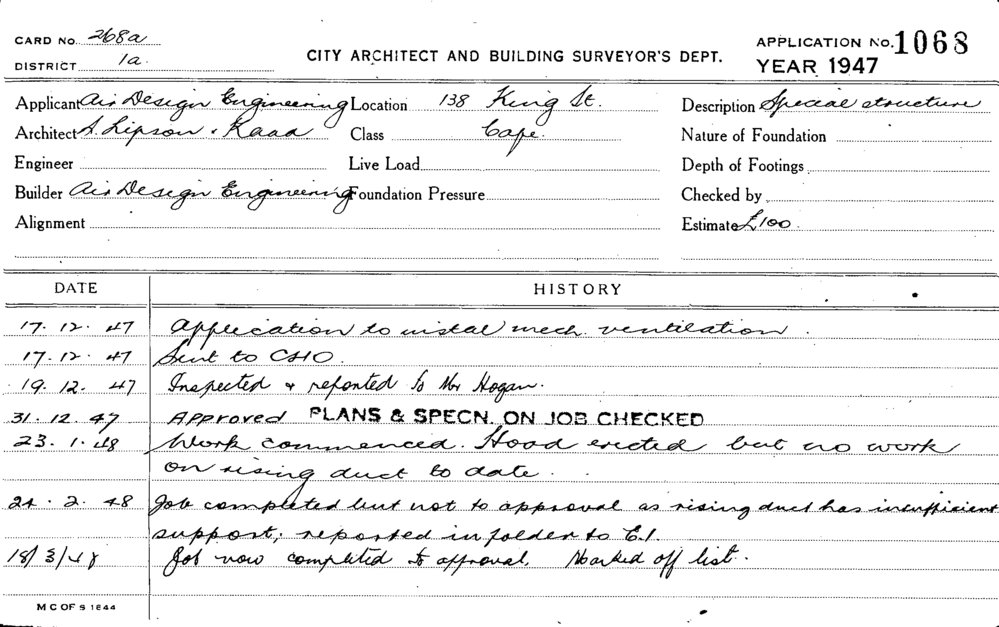 CARD No. 268a
DISTRICT 1a
CITY ARCHITECT AND BUILDING SURVEYOR'S DEPT.
APPLICATION No. 1068
YEAR 1947
Applicant Air Design Engineering Location 138 King St. Description Special structure
Architect S. Lipson & Kaad Class Cafe. Nature of Foundation
Engineer Live Load Depth of Footings
Builder Air Design Engineering Foundation Pressure Checked by
Alignment Estimate £100
DATE HISTORY
17. 12. 47 Application to instal mech. ventilation.
17. 12. 47 Sent to CHO.
19. 12. 47 Inspected & reported to Mr Hogan.
31. 12. 47 Approved PLANS & SPECN. ON JOB CHECKED
23. 1. 48 Work commenced. Hood erected but no work
on rising duct to date.
24. 2. 48 Job completed but not to approval as rising duct has insufficient
support; reported in folder to E.I.
18/3/48 Job now completed to approval. Marked off list.
M C OF S 1644